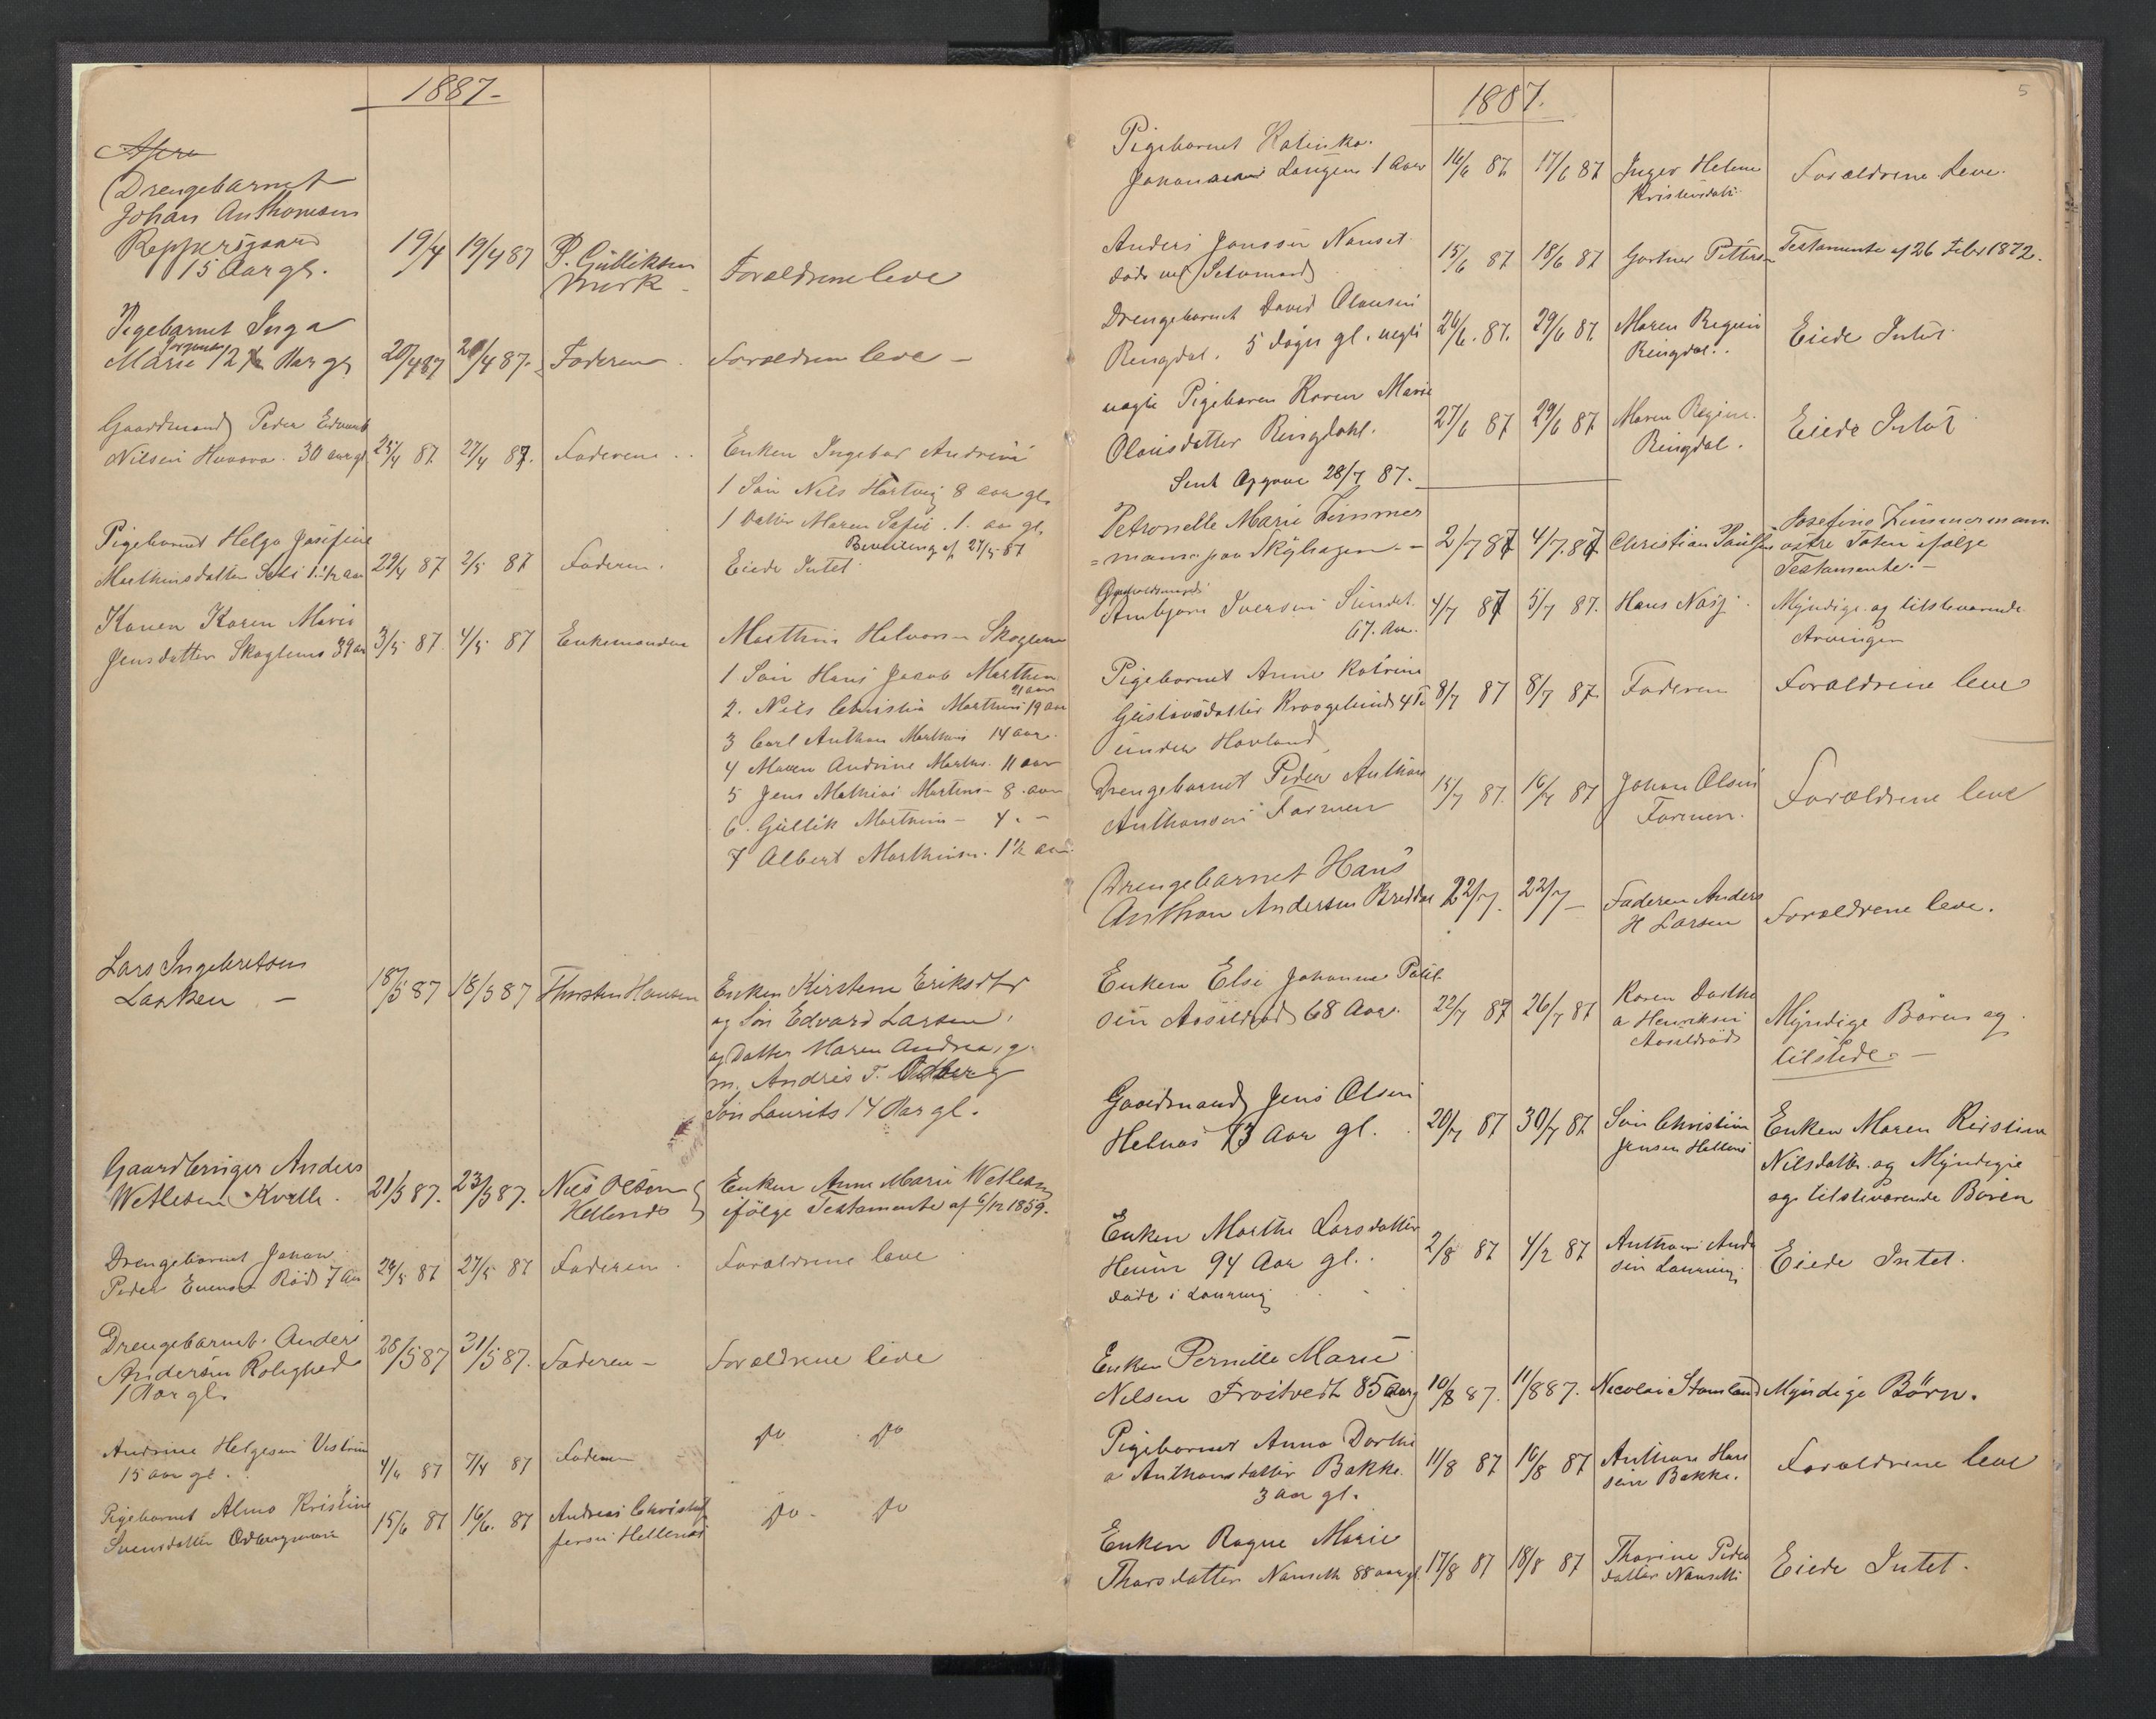 1887-
Drengebarnet
Johan Anthonisen
Reppesgaard
15 Aar gl. 19/4 19/4 87 P. Gulliksen
Mørk - Forældrene leve
Pigebarnet Inga
Jørgensen
Marie 12 Aar gl 20/4 87 20/4 87. Faderen Forældrene leve -
Gaardmand Peder Edvard
Nilsen Huvova. 30 aar gl 25/4 87 27/4 87. Faderen .. Enken Ingebor Andrine
1 Søn Nils Hartvig 8 aar gl.
1 Datter Maren Sofie. 1. aar gl.
Bevilling af 27/5 87
Pigebarnet Helga Josefine
Mathinsdatter 1 1/2 aar 29/4 87 2/5 87 Faderen. Eiede Intet
Konen Karen Marie
Jensdatter Skoglund 39 aar 3/5 87. 4/5 87 Enkemanden Marthin Halvorsen Skoglund
1 Søn Hans Jacob Marthin
21 aar
2. Nils Christia Marthins 19 aar
3 Carl Anthon Marthins 14 aar.
4 Maren Andrine Marths. 11 aar
5 Jens Mathias Martins- 8 aar
6. Gullik Marthins - 4. -
7 Albert Marthinsen. 1 1/2 aar.
Lars Ingebretsen
Laaken - 18/5 87 18/5 87 Thorsten Hansen Enken Kirstine Eriksdtr
og Søn Edvard Larsen,
og Datter Maren Andrea, g.
m. Andreas T. Odberg
Søn Laurits 14 Aar gl.
Gaardbruger Anders
Wetlesen Kvelle. 21/5 87. 23/5 87. Nils Olsen
Hellenes Enken Anne Marie Wetlesen
ifølge Testamente af 6/12 1859.
Drengebarnet Johan
Peder Evensen Röd 7 Aar 24/5 87 27/5 87 Faderen. Forældrene leve
Drengebarnet Anders
Andersen Rolighed
1 Aar gl. 28/5 87 31/5 87. Faderen - Forældrene leve
Andrine Helgesen
15 aar gl. 4/6 87 7/4 87 Faderen do do
Pigebarnet Alma Kristine
Svensdatter 15/6 87 16/6. 87 Andreas Christof
fersen Hellenes do - do
1887.
5
Pigebarnet Katinka
Johannesen Langen 1 Aar 16/6 87 17/6 87 Inger Helene
Kristensdatt. Forældrene Leve.
Anders Janssen Nanset
døde ved 15/6 87 18/6 87 Gartner Pettersen Testamente af 26 Febr 1872.
Drengebarnet David Olausen
Ringdal. 5 døgn gl. uegte 26/6. 87. 29/6 87 Maren Regine
Ringdal. Eiede Intet
uegte Pigebarn Karen Marie
Olausdatter Ringdahl. 27/6 87 29/6 87 Maren Regine.
Ringdal. Eiede Intet
Sent Opgave 28/7 87.
Petronelle Marie Zimmer
=mann paa Skyhagen - 2/7 87 4/7. 87 Christian Paulsen Josefine Zimmermann
østre Toten ifølge
Testamente. -
Ambjørn Iversen Sundet.
67. Aar. 4/7 87 5/7 87. Hans Næss. Myndige og tilstevarende
Arvinger
Pigebarnet Anne Katrine
Gustavsdatter 8/7 87 8/7 87 Faderen Forældrene leve
under Hovland
Drengebarnet Peder Anthon
Anthonsen Farmen 15/7 87. 16/7 87 Johan Olsen
Farmen. Forældrene leve
Drengebarnet Hans
Anthon Andersen 22/7. 22/7 - Faderen Anders
H Larsen Forældrene leve.
Enken Else Johanne Paul-
sen 68 Aar. 22/7 87 26/7 87 Karen Dorthe
a Henriksen Myndige Børn og
tilstede. -
Gaardmand Jens Olsen
Helnæs 73 Aar gl. 20/7 87 30/7 87 Søn Christian
Jensen Enken Maren Kirstine
Nilsdatter og Myndige
og tilstevarende Børn
Enken Marthe Larsdatter
Heum 94 Aar gl. 2/8 87 4/8 87 Anthon Ander
sen Lauruug Eiede Intet.
døde i
Enken Pernille Marie
Nilsen Frostvedt 85 Aar g 10/8 87. 11/8 87. Nicolai Stamland Myndige Børn.
Pigebarnet Anna Dorthe
a Anthonsdatter Bakke. 11/8 87 16/8 87 Anthon Han
sen Bakke. Forældrene leve
3 aar gl.
Enken Ragne Marie
Thorsdatter Nanseth 88 aar gl. 17/8 87 18/8 87 Thorine Peder
datter Nanseth Eiede Intet.